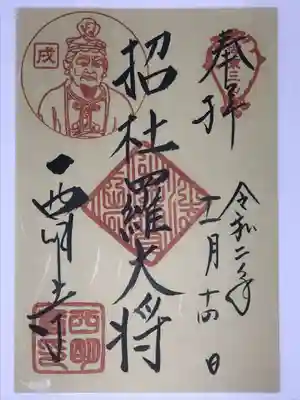 奉拝
令和二年
十一月十四日
招杜羅大将
西明寺
戌
西明